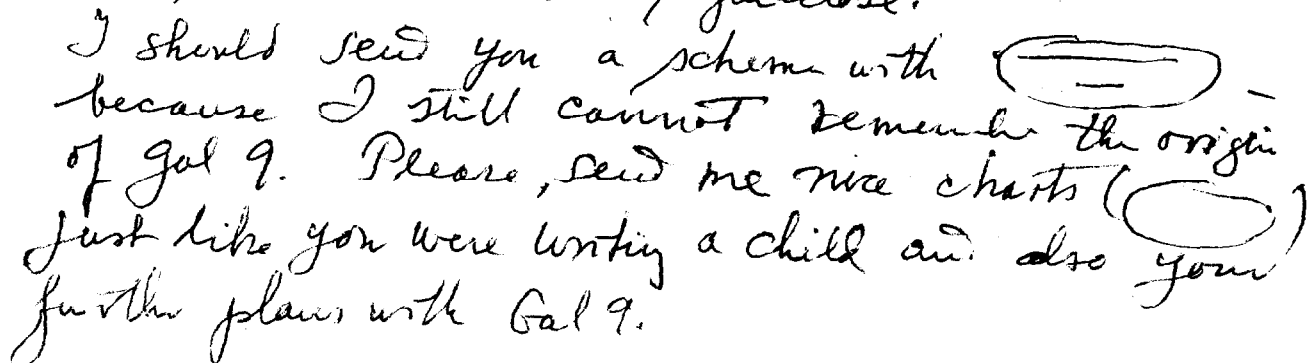 I should send you a scheme with
because I still cannot remember the origin
of Gal 9. Please, send me nice charts ( )
just like you were writing a child and also your
further plans with Gal 9.